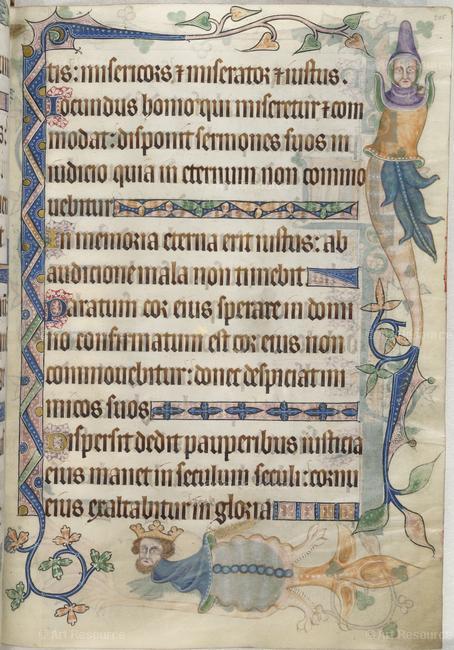 tis: misericors ⁊ miserator ⁊ iustus.
Iocundus homo qui miseretur ⁊ com
modat: disponit sermones suos in
iudicio quia in eternum non commo
uebitur
In memoria eterna erit iustus: ab
audicione mala non timebit
Paratum cor eius sperare in domi
no confirmatum est cor eius non
commouebitur: donec despiciat ini
micos suos
Dispersit dedit pauperibus iusticia
eius manet in seculum seculi: cornu
eius exaltabitur in gloria
© Art Resource
© Art Resource